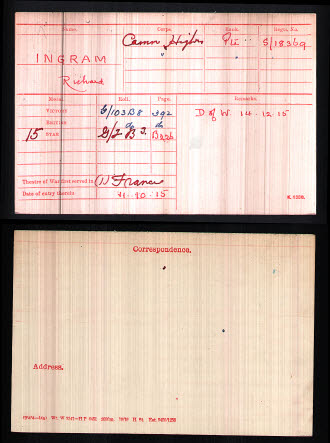 Name. Corps. Rank. Regtl. No.
INGRAM Camn Highrs Pte S/18369
Richard
Medal. Roll. Page. Remarks.
VICTORY G/103B8 392 D of W. 14.12.15
BRITISH do do
15 STAR G/2 B3.
Theatre of War first served in (1) France
Date of entry therein .10.15
K. 1380.
Correspondence.
Address.